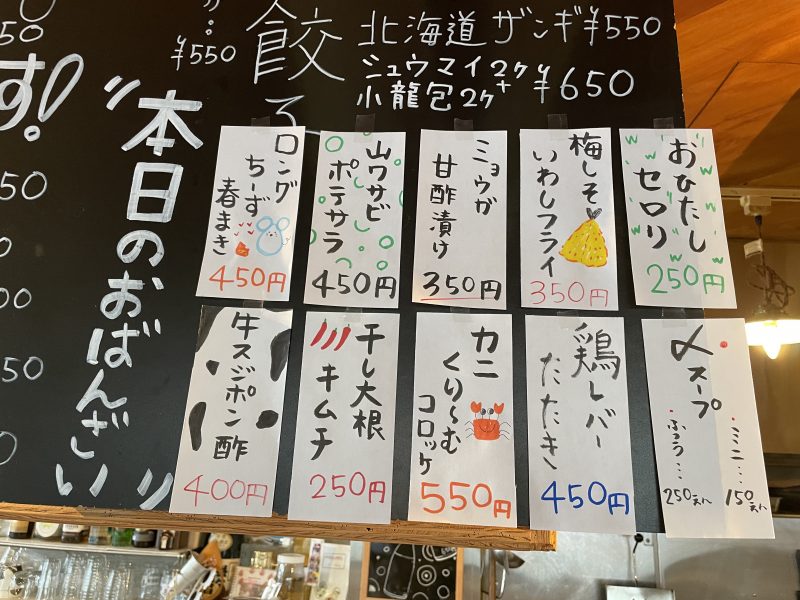 50
す!
50
00
50
¥550
餃
北海道ザンギ¥550
シュウマイ2ケ
小龍包2ケ
+
¥650
"本日のおばんざい"
おひたし
セロリ
250円
梅しそ
いわしフライ
350円
ミョウガ
甘酢漬け
350円
山ワサビ
ポテサラ
450円
ロング
ちーず
春まき
450円
〆スープ
・ミニ…150円
・ふつう…250円
鶏レバー
たたき
450円
カニ
くり〜む
コロッケ
550円
干し大根
キムチ
250円
牛スジポン酢
400円